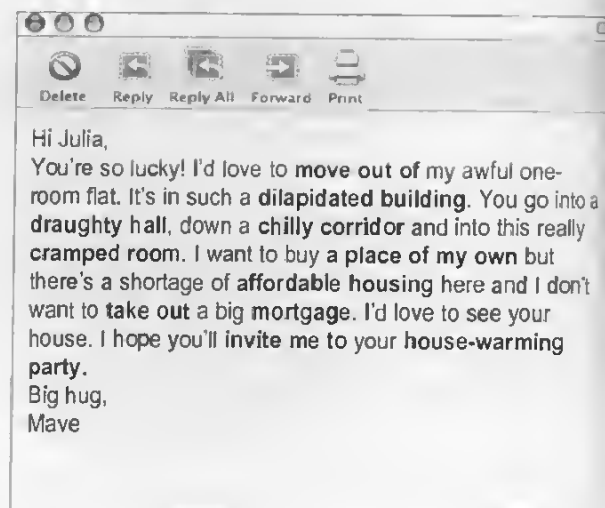 Delete Reply Reply All Forward Print
Hi Julia,
You're so lucky! I'd love to move out of my awful one-
room flat. It's in such a dilapidated building. You go into a
draughty hall, down a chilly corridor and into this really
cramped room. I want to buy a place of my own but
there's a shortage of affordable housing here and I don't
want to take out a big mortgage. I'd love to see your
house. I hope you'll invite me to your house-warming
party.
Big hug,
Mave